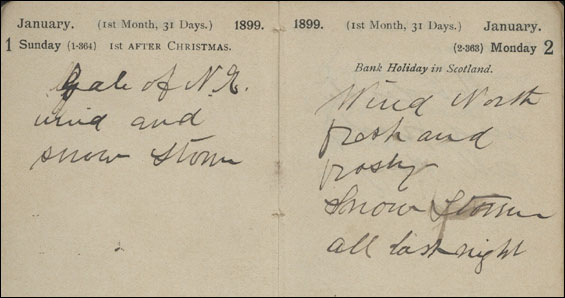 January. (1st Month, 31 Days.) 1899.
1 Sunday (1-364) 1st AFTER CHRISTMAS.
Gale of N.E.
wind and
snow storm
1899. (1st Month, 31 Days.) January.
(2-363) Monday 2
Bank Holiday in Scotland.
Wind North
fresh and
frosty
Snow Storm
all last night